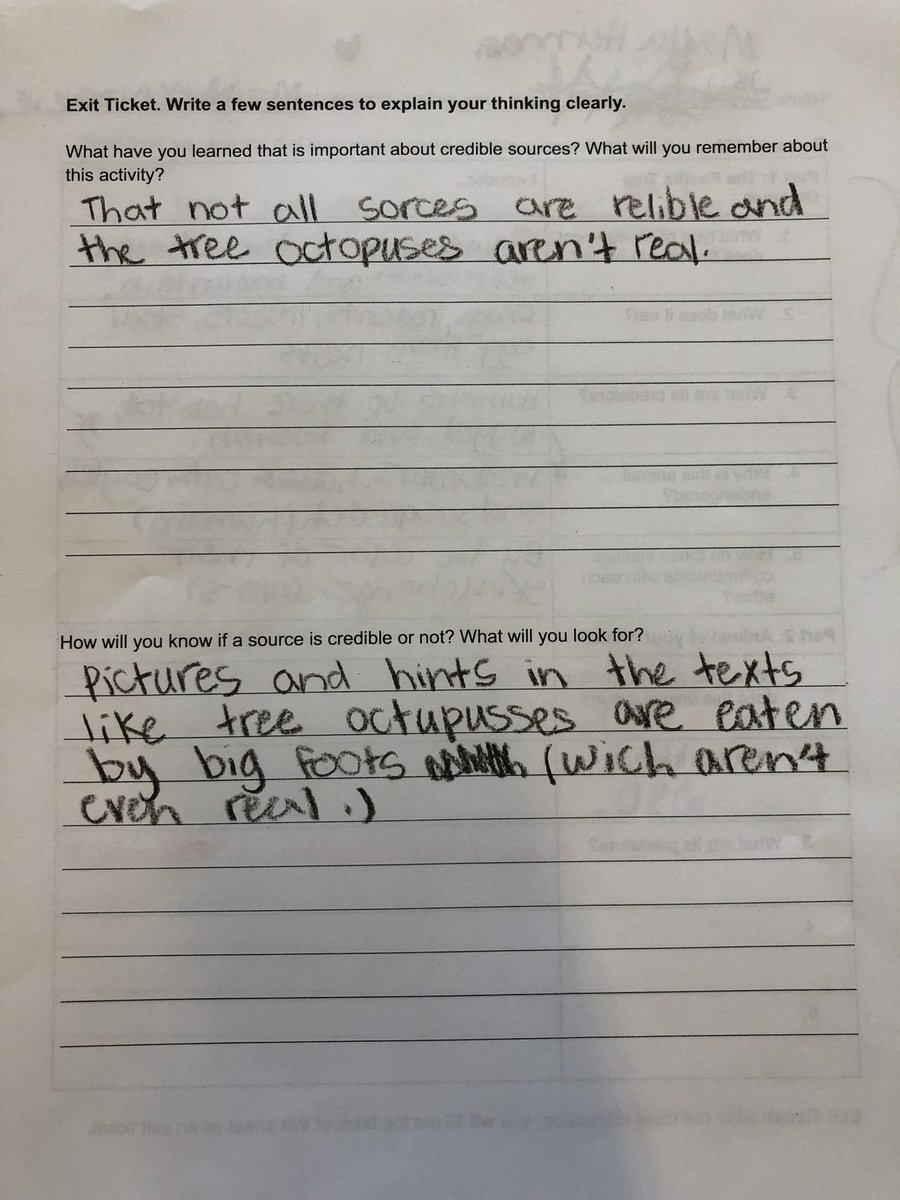 Exit Ticket. Write a few sentences to explain your thinking clearly.
What have you learned that is important about credible sources? What will you remember about
this activity?
That not all sorces are relible and
the tree octopuses aren't real.
How will you know if a source is credible or not? What will you look for?
Pictures and hints in the texts
like tree octupusses are eaten
by big foots (wich aren't
even real.)